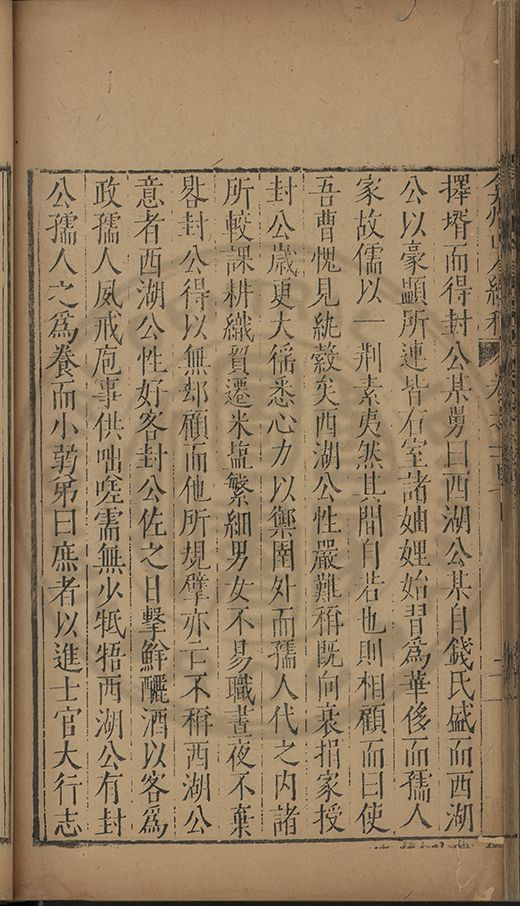 弇州山人續稿 卷之
擇壻而得封公某舅曰西湖公某自錢氏盛而西湖
公以豪顯所連皆右室諸妯娌始習爲華侈而孺人
家故儒以一荆素夷然其間自若也則相顧而曰使
吾曹愧見紈縠矣西湖公性嚴難稱既向衰捐家授
封公歲更大稱悉心力以禦圉外而孺人代之内諸
所較課耕織貿遷米塩繁細男女不易職晝夜不棄
晷封公得以無却顧而他所規擘亦亡不稱西湖公
意者西湖公性好客封公佐之日擊鮮釃酒以客爲
政孺人夙戒庖事供咄嗟需無少牴牾西湖公有封
公孺人之爲養而小弱弟曰庶者以進士官大行志